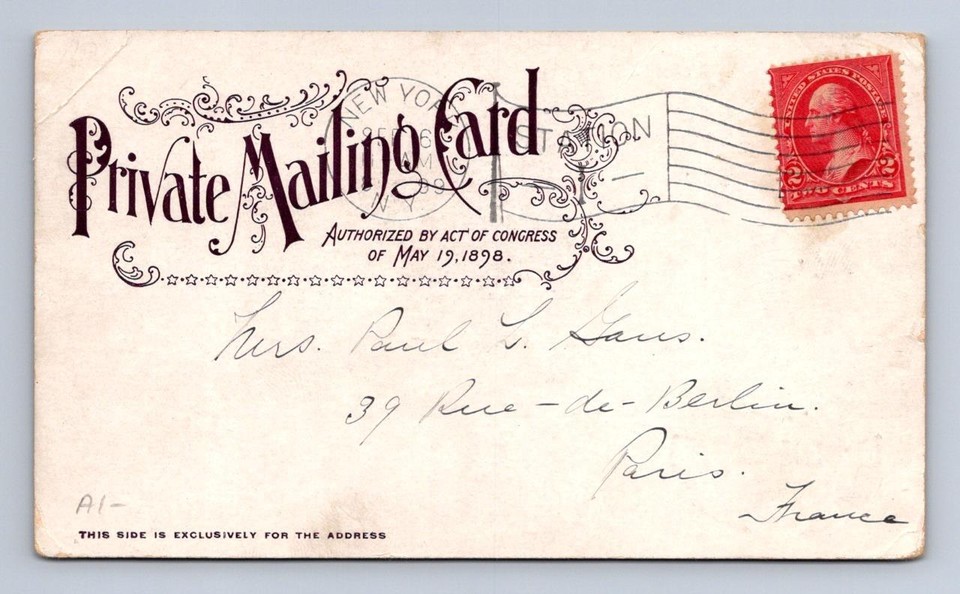 Private Mailing Card
AUTHORIZED BY ACT OF CONGRESS
OF MAY 19, 1898.
NEW YORK
SEP 6
AM
99
N.Y.
STATION
UNITED STATES POSTAGE
2 2
TWO CENTS
Mrs. Paul L. Gans.
39 Rue-de-Berlin.
Paris.
France
A1-
THIS SIDE IS EXCLUSIVELY FOR THE ADDRESS